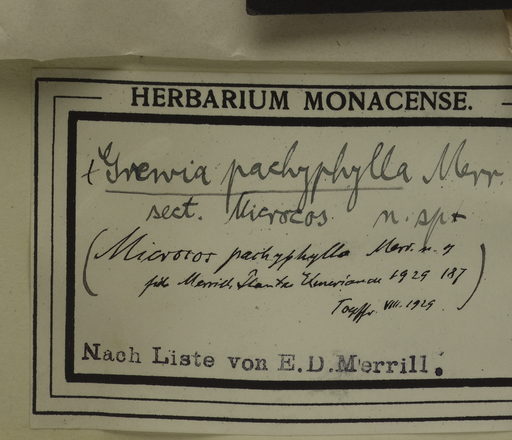 HERBARIUM MONACENSE.
Grewia pachyphylla Merr.
sect. Microcos n. sp.
(Microcos pachyphylla Merr. n. g
fide Merrill, Plantae Elmerianae 1929 187)
VIII. 1929.
Nach Liste von E.D.Merrill.